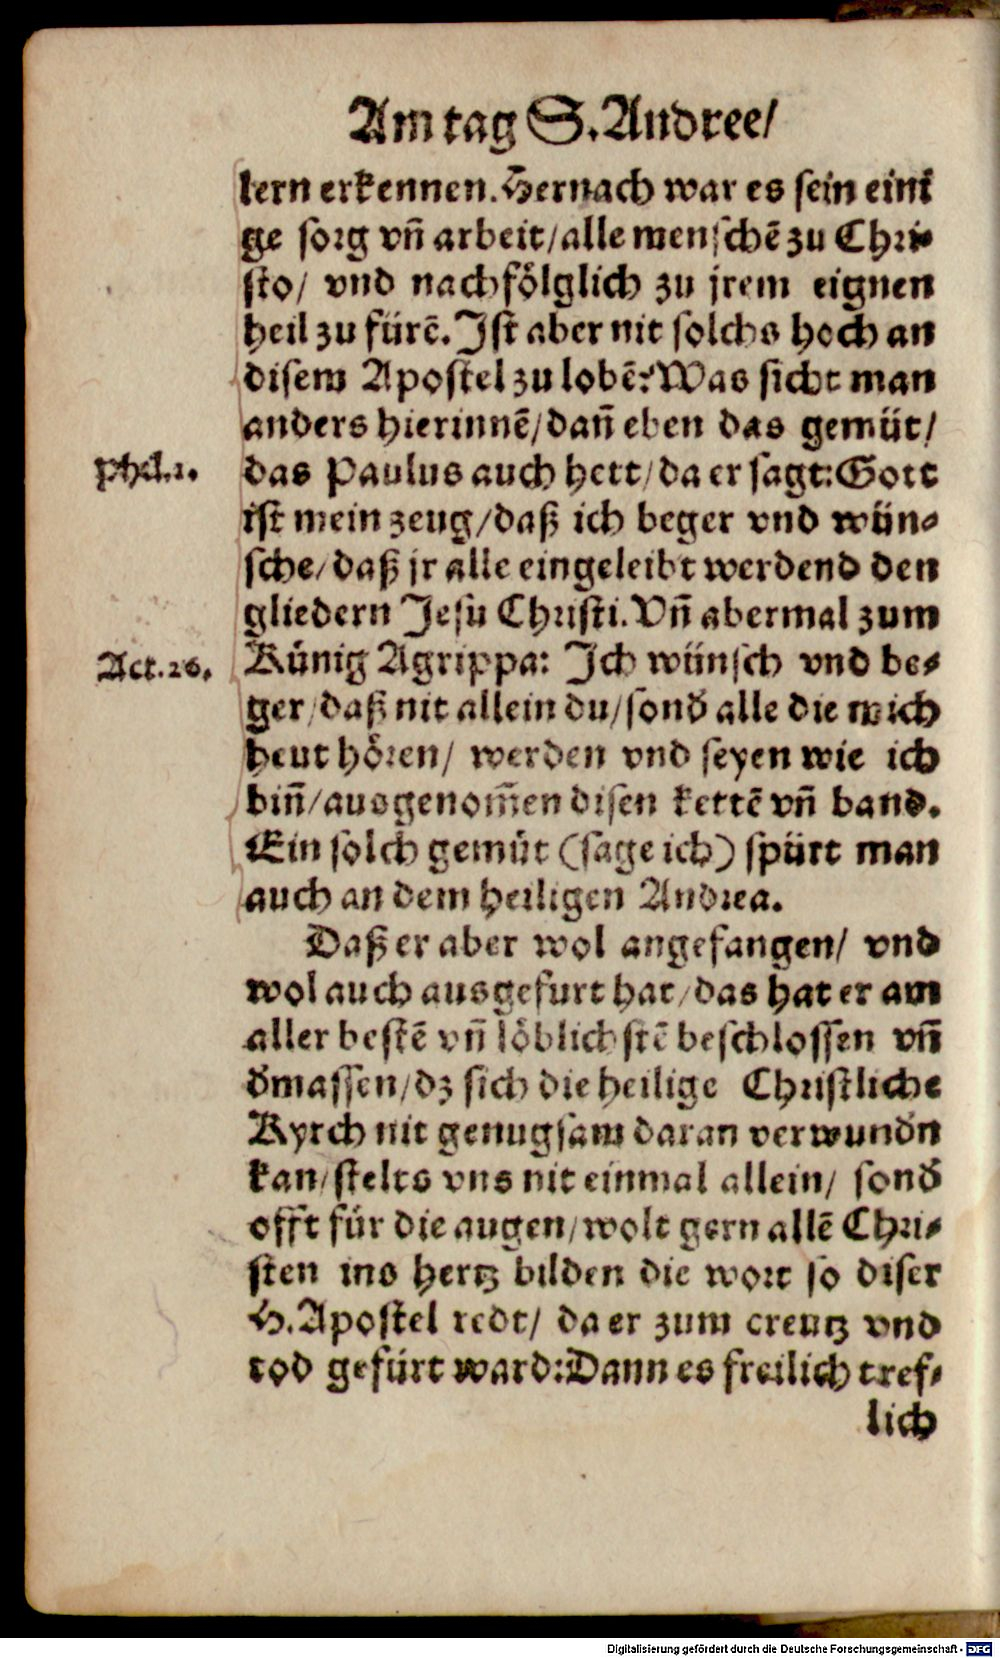 Am tag S. Andree/
lern erkennen. Hernach war es sein eini
ge sorg vn̄ arbeit/ alle menschē zu Chri-
sto/ vnd nachfölglich zu jrem eignen
heil zu fürē. Ist aber nit solchs hoch an
disem Apostel zu lobē? Was sicht man
anders hierinnē/ dan̄ eben das gemüt/
Phil.1.
das Paulus auch hett/ da er sagt: Gott
ist mein zeug/ daß ich beger vnd wün-
sche/ daß jr alle eingeleibt werdend den
gliedern Jesu Christi. Vn̄ abermal zum
Act.26.
Künig Agrippa: Ich wünsch vnd be-
ger/ daß nit allein du/ sond̄ alle die mich
heut hören/ werden vnd seyen wie ich
bin̄/ ausgenom̄en disen kettē vn̄ band.
Ein solch gemüt (sage ich) spürt man
auch an dem heiligen Andrea.
Daß er aber wol angefangen/ vnd
wol auch ausgefurt hat/ das hat er am
aller bestē vn̄ löblichstē beschlossen vn̄
d̄massen/ dz sich die heilige Christliche
Kyrch nit genugsam daran verwund̄n
kan/ stelts vns nit einmal allein/ sond̄
offt für die augen/ wolt gern allē Chri-
sten ins hertz bilden die wort so diser
H. Apostel redt/ da er zum creutz vnd
tod gefürt ward: Dann es freilich tref-
lich
Digitalisierung gefördert durch die Deutsche Forschungsgemeinschaft - DFG